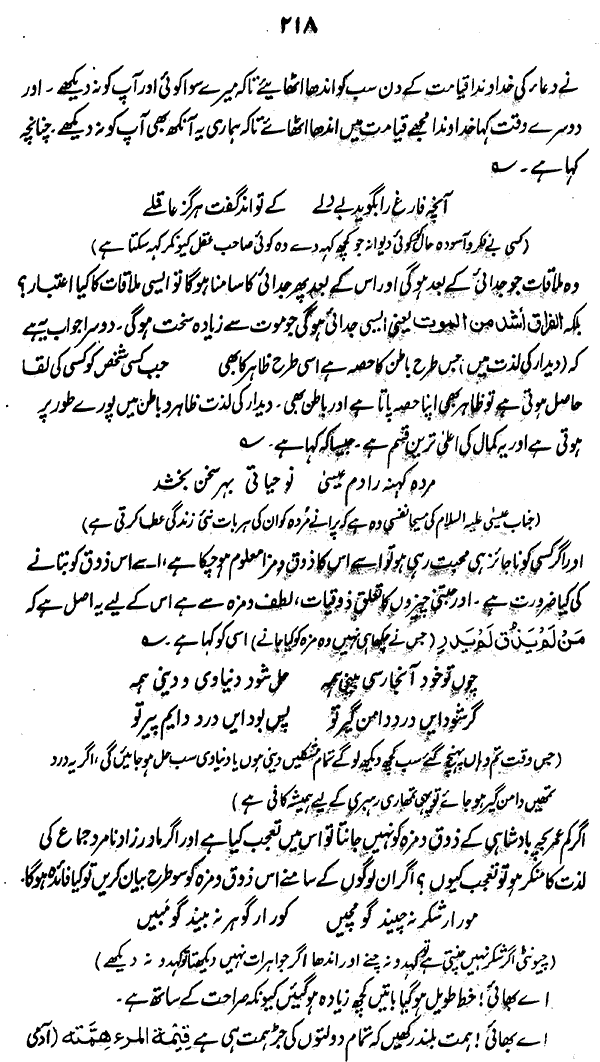 ۲۱۸
نے دعا۔ کی خداوندا قیامت کے دن سب کو اندھا اٹھایئے تاکہ میرے سوا کوئی اور آپ کو نہ دیکھے۔ اور
دوسرے وقت کہا خداوندا مجھے قیامت میں اندھا اٹھائے تاکہ ہماری یہ آنکھ بھی آپ کو نہ دیکھے۔ چنانچہ
کہا ہے۔ ؎
آنچہ فارغ را بگوید بے دلے کے تواند گفت ہرگز عاقلے
(کسی بے فکر و آسودہ حال کو کوئی دیوانہ جو کچھ کہہ دے وہ کوئی صاحب عقل کیونکر کہہ سکتا ہے)
وہ ملاقات جو جدائی کے بعد ہوگی اور اس کے بعد پھر جدائی کا سامنا ہوگا تو ایسی ملاقات کا کیا اعتبار؟
بلکہ الفراق أشد من الموت یعنی ایسی جدائی ہوگی جو موت سے زیادہ سخت ہوگی۔ دوسرا جواب یہ ہے
کہ (دیدار کی لذت میں) جس طرح باطن کا حصہ ہے اسی طرح ظاہر کا بھی جب کسی شخص کو کسی کی لقا
حاصل ہوتی ہے تو ظاہر بھی اپنا حصہ پاتا ہے اور باطن بھی۔ دیدار کی لذت ظاہر و باطن میں پورے طور پر
ہوتی ہے اور یہ کمال کی اعلیٰ ترین قسم ہے۔ جیسا کہ کہا ہے۔ ؎
مردہ کہنہ را دم عیسیٰ نو حیاتی بہر سخن بخشد
(جناب عیسیٰ علیہ السلام کی مسیحا نفسی وہ ہے کہ پرانے مُردہ کو ان کی ہر بات نئی زندگی عطا کرتی ہے)
اور اگر کسی کو ناجائز ہی محبت رہی ہو تو اسے اس کا ذوق و مزا معلوم ہو چکا ہے، اسے اس ذوق کو بتانے
کی کیا ضرورت ہے۔ اور جتنی چیزوں کا تعلق ذوقیات، لطف و مزہ سے ہے اس کے لیے یہ اصل ہے کہ
مَنْ لَمْ یَذُقْ لَمْ یَدْرِ (جس نے چکھا ہی نہیں وہ مزہ کو کیا جانے) اسی کو کہا ہے۔ ؎
چوں تو خود آنجا رسی بینی ہمہ حل شود دنیاوی و دینی ہمہ
گر شود ایں درد دامن گیر تو پس بود ایں درد دایم پیر تو
(جس وقت تم وہاں پہنچ گئے سب کچھ دیکھ لوگے تمام مشکلیں دینی ہوں یا دنیادی سب حل ہو جائیں گی، اگر یہ درد
تمھیں دامن گیر ہو جائے تو یہی تمھاری رہبری کے لیے ہمیشہ کافی ہے)
اگر کم عمر بچہ بادشاہی کے ذوق و مزہ کو نہیں جانتا تو اس میں تعجب کیا ہے اور اگر مادر زاد نامرد جماع کی
لذت کا منکر ہو تو تعجب کیوں؟ اگر ان لوگوں کے سامنے اس ذوق و مزہ کو سو طرح بیان کریں تو کیا فائدہ ہوگا۔
مور ار شکر نہ چیند گو مچیں کور ار گوہر نہ بیند گو مبیں
(چیونٹی اگر شکر نہیں چنتی ہے تو کہدو نہ چنے اور اندھا اگر جواہرات نہیں دیکھتا تو کہدو نہ دیکھے)
اے بھائی! خط طویل ہوگیا باتیں کچھ زیادہ ہوگئیں کیونکہ صراحت کے ساتھ ہے۔
اے بھائی! ہمت بلند رکھیں کہ تمام دولتوں کی جڑ ہمت ہی ہے قِیْمَۃُ المرءِ هِمَّتُه (آدمی